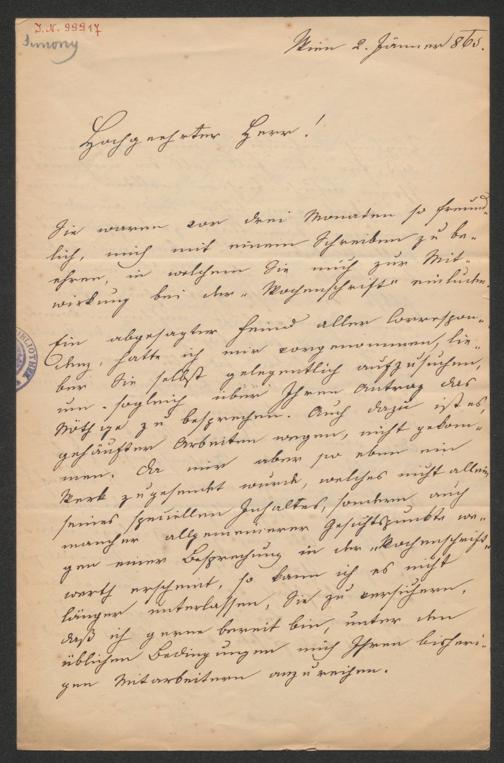 J.N. 99917
Simony
Wien 2. Jänner 865.
Hochgeehrter Herr!
Sie waren vor drei Monaten so freund-
lich, mich mit einem Schreiben zu be-
ehren, in welchem Sie mich zur Mit-
wirkung bei der "Wochenschrift" einluden.
Ein abgesagter Feind aller Correspon-
denz, hatte ich mir vorgenommen, lie-
ber Sie selbst gelegentlich aufzusuchen,
um sogleich über Ihren Antrag das
Nöthige zu besprechen. Auch dazu ist es,
gehäufter Arbeiten wegen, nicht gekom-
men. Da mir aber so eben ein
Werk zugesendet wurde, welches nicht allein
seines speziellen Inhaltes, sondern auch
mancher allgemeinerer Gesichtspunkte we-
gen einer Besprechung in der "Wochenschrift"
werth erscheint, so kann ich es nicht
länger unterlassen, Sie zu versichern,
daß ich gerne bereit bin, unter den
üblichen Bedingungen mich Ihren bisheri-
gen Mitarbeitern anzureihen.